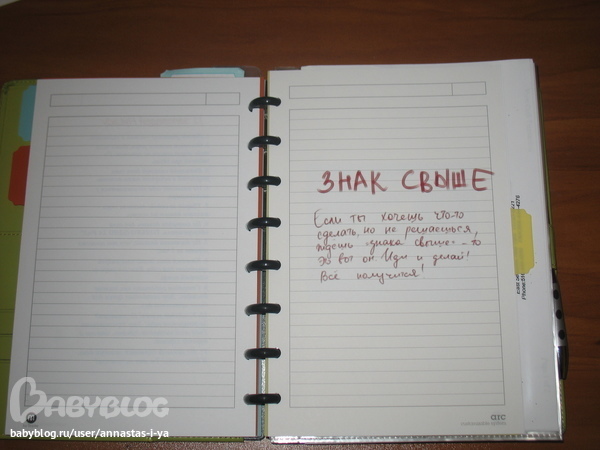 ЗНАК СВЫШЕ
Если ты хочешь что-то
сделать, но не решаешься,
ждёшь "знака свыше" - то
это вот он. Иди и делай!
Всё получится!
arc
BABYBLOG
babyblog.ru/user/annastas-i-ya